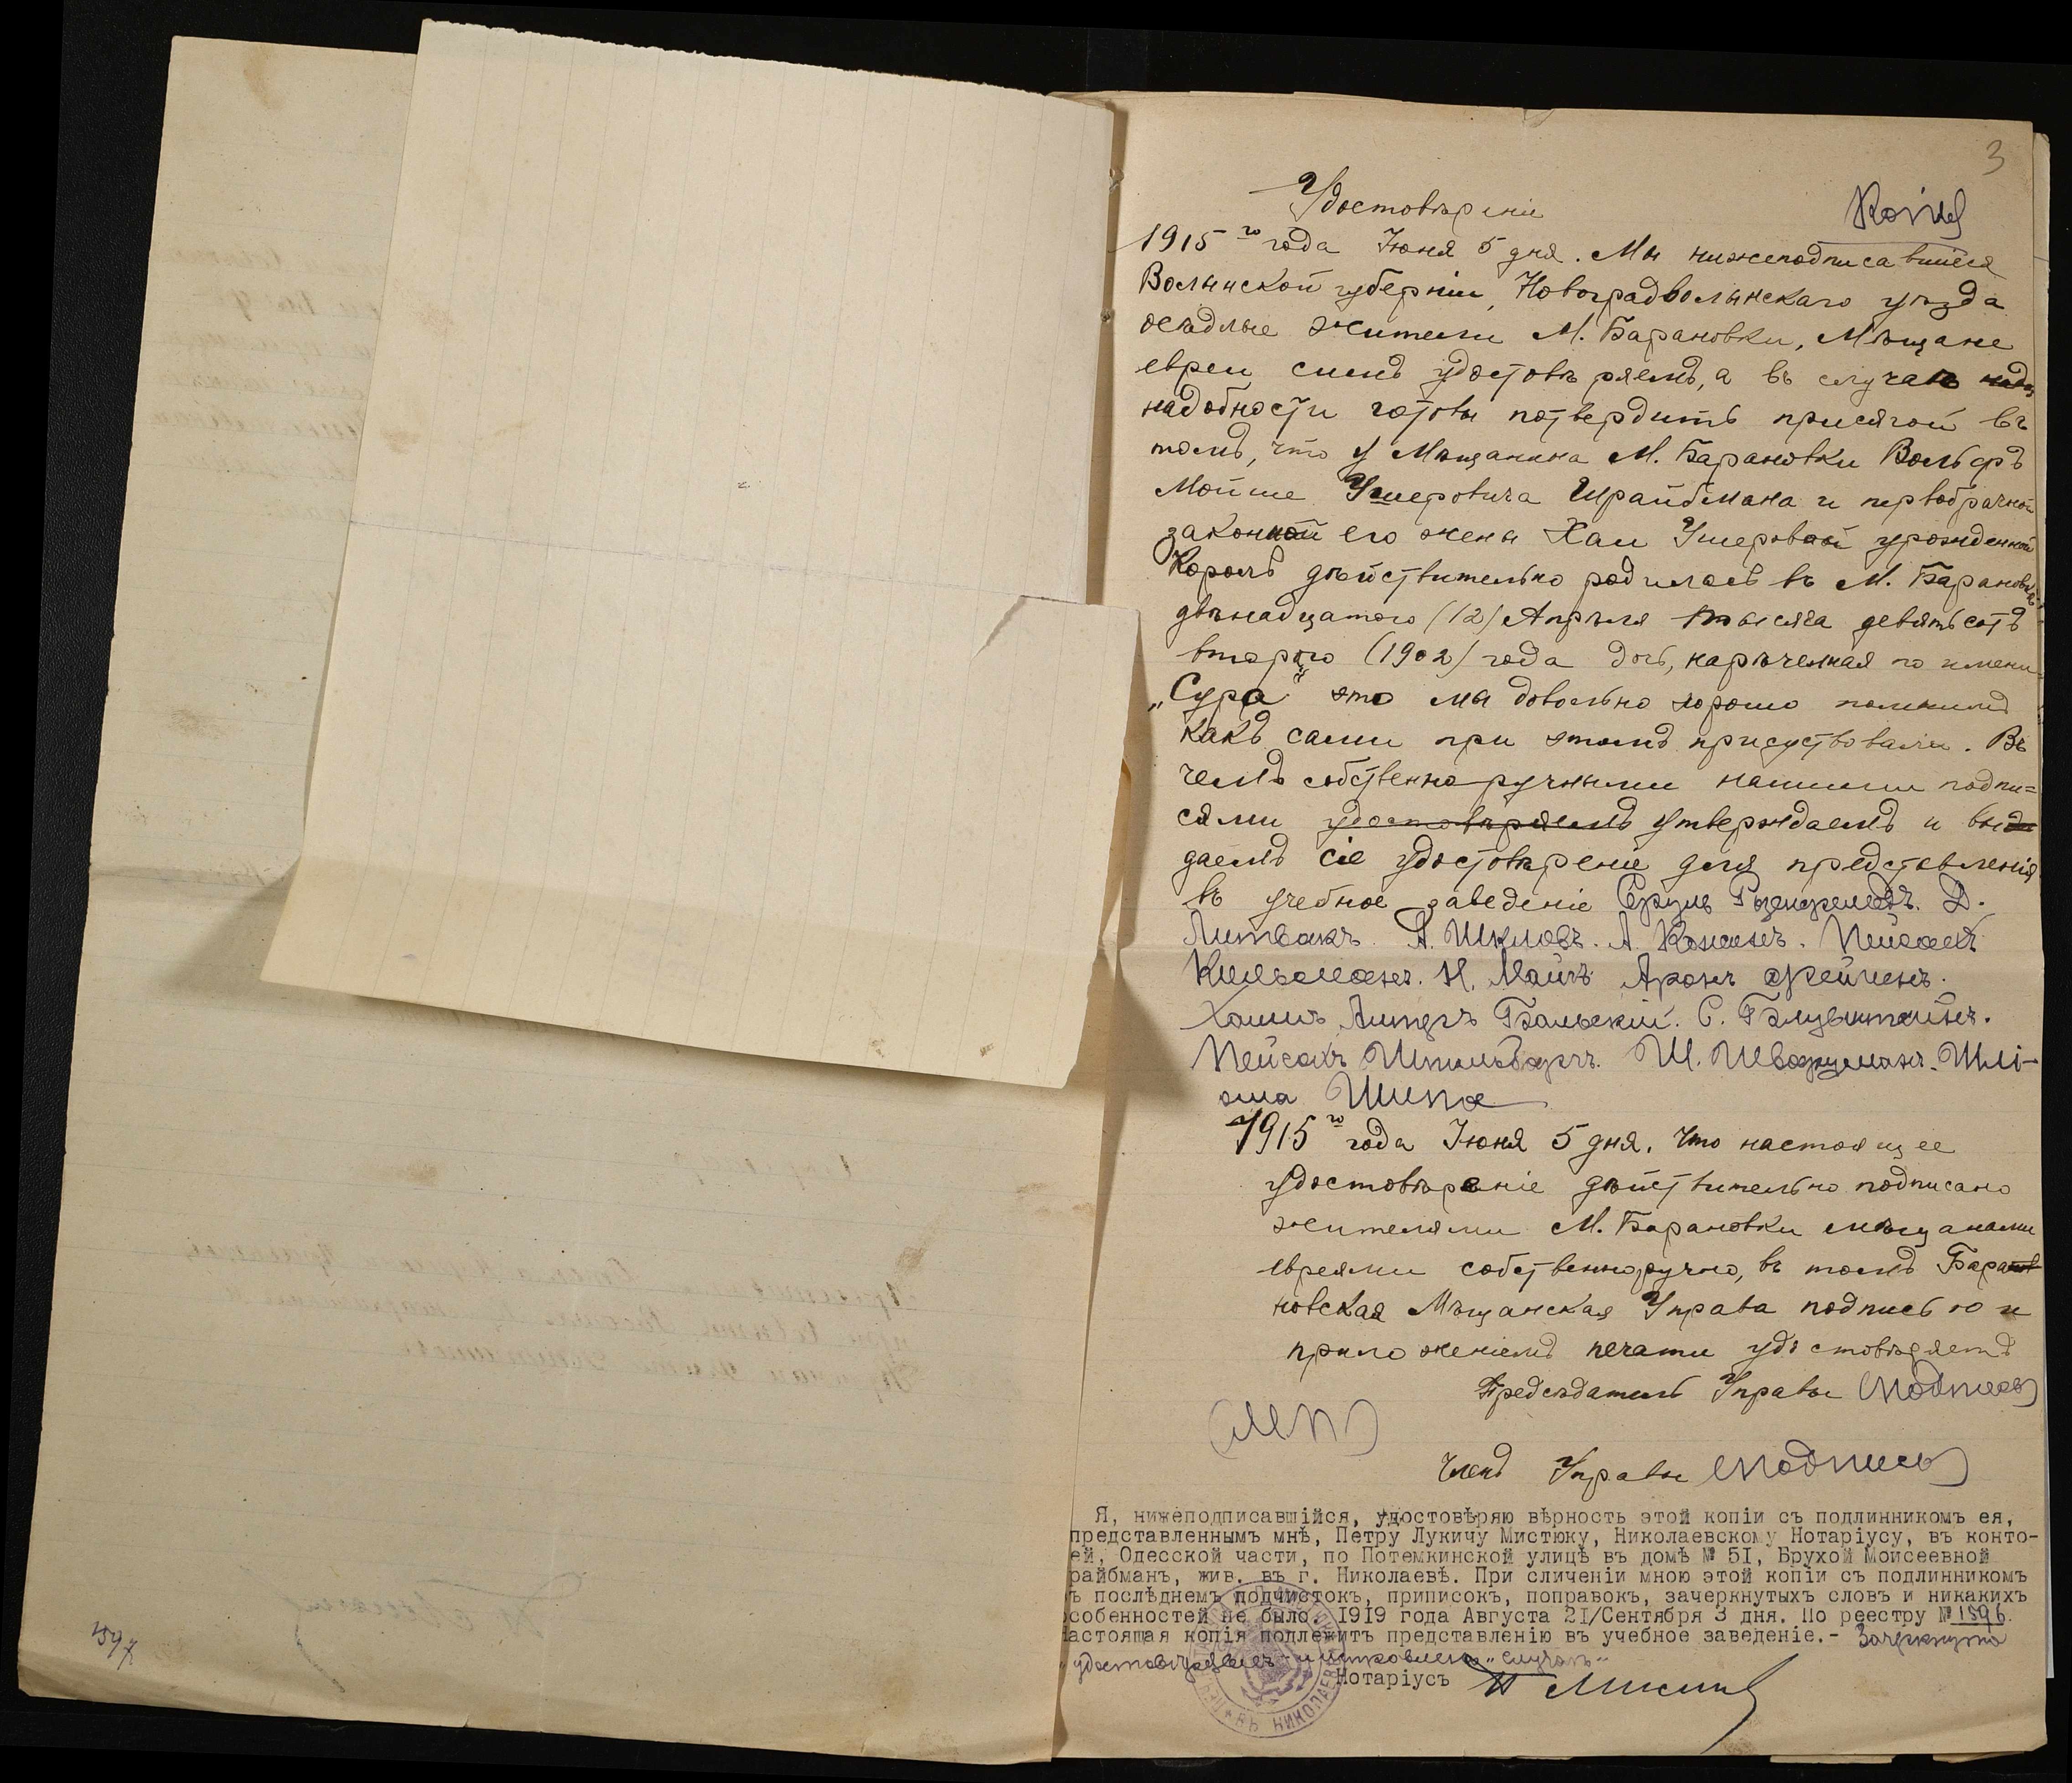 3
Удостовѣреніе
Копія
1915 го года Іюня 5 дня. Мы нижеподписавшіеся
Волынской губерніи, Новоградволынскаго уѣзда
осѣдлые жители М. Барановки, Мѣщане
евреи симъ удостовѣряемъ, а въ случаѣ
надобности готовы потвердить присягой въ
томъ, что у Мѣщанина М. Барановки Вольфъ
Мойше Ушеровича Шрайбмана и первобрачной
законной его жены Хаи Ушеровой урожденной
Король дѣйствительно родилась въ М. Барановкѣ
двѣнадцатого (12) Апрѣля тысяча девятьсотъ
второго (1902) года дочь, нарѣченная по имени
„Сура" это мы довольно хорошо помнимъ
какъ сами при этомъ присуствовали. Въ
чемъ собственноручными нашими подпи=
сями удостовѣряемъ утверждаемъ и вы
даемъ сіе удостовѣреніе для представленія
въ учебное заведеніе Сруль Розенфельдъ. Д.
Литвакъ. А. Шкловъ. А. Пейсахъ
Кильманъ. Н. Майъ Аронъ
Бальскій. С.
Пейсахъ Ш. Шварцманъ. Шлі-
ома Шипа
1915 го года Іюня 5 дня. Что настоящее
удостовѣреніе дѣйствительно подписано
жителями М. Барановки мѣщанами
евреями собственноручно, въ томъ Бара
новская Мѣщанская Управа подписью и
приложеніемъ печати удостовѣряетъ
Предсѣдатель Управы (подпись)
(МП)
Членъ Управы (подпись)
Я, нижеподписавшійся, удостовѣряю вѣрность этой копіи съ подлинникомъ ея,
представленнымъ мнѣ, Петру Лукичу Мистюку, Николаевскому Нотаріусу, въ конто-
ей, Одесской части, по Потемкинской улицѣ въ домѣ № 5I, Брухой Моисеевной
райбманъ, жив. въ г. Николаевѣ. При сличеніи мною этой копіи съ подлинникомъ
ъ послѣднемъ подчистокъ, приписокъ, поправокъ, зачеркнутыхъ словъ и никакихъ
собенностей не было. 1919 года Августа 21/Сентября 3 дня. По реестру № 1896.
астоящая копія подлежитъ представленію въ учебное заведеніе.- Зачеркнуто
„удостовѣряемъ" „случаѣ"
Нотаріусъ
1597